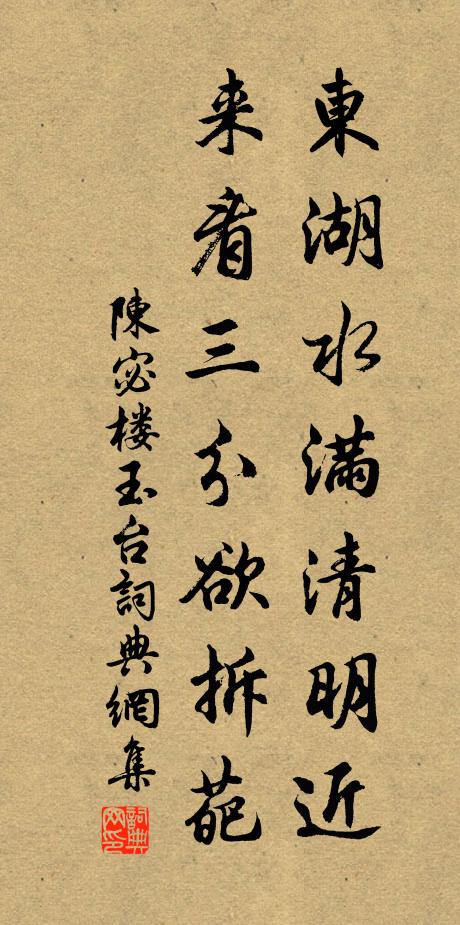 東湖水滿清明近
来看三分欲拆葩
陳宓楼玉台詞典網集
詞典网印